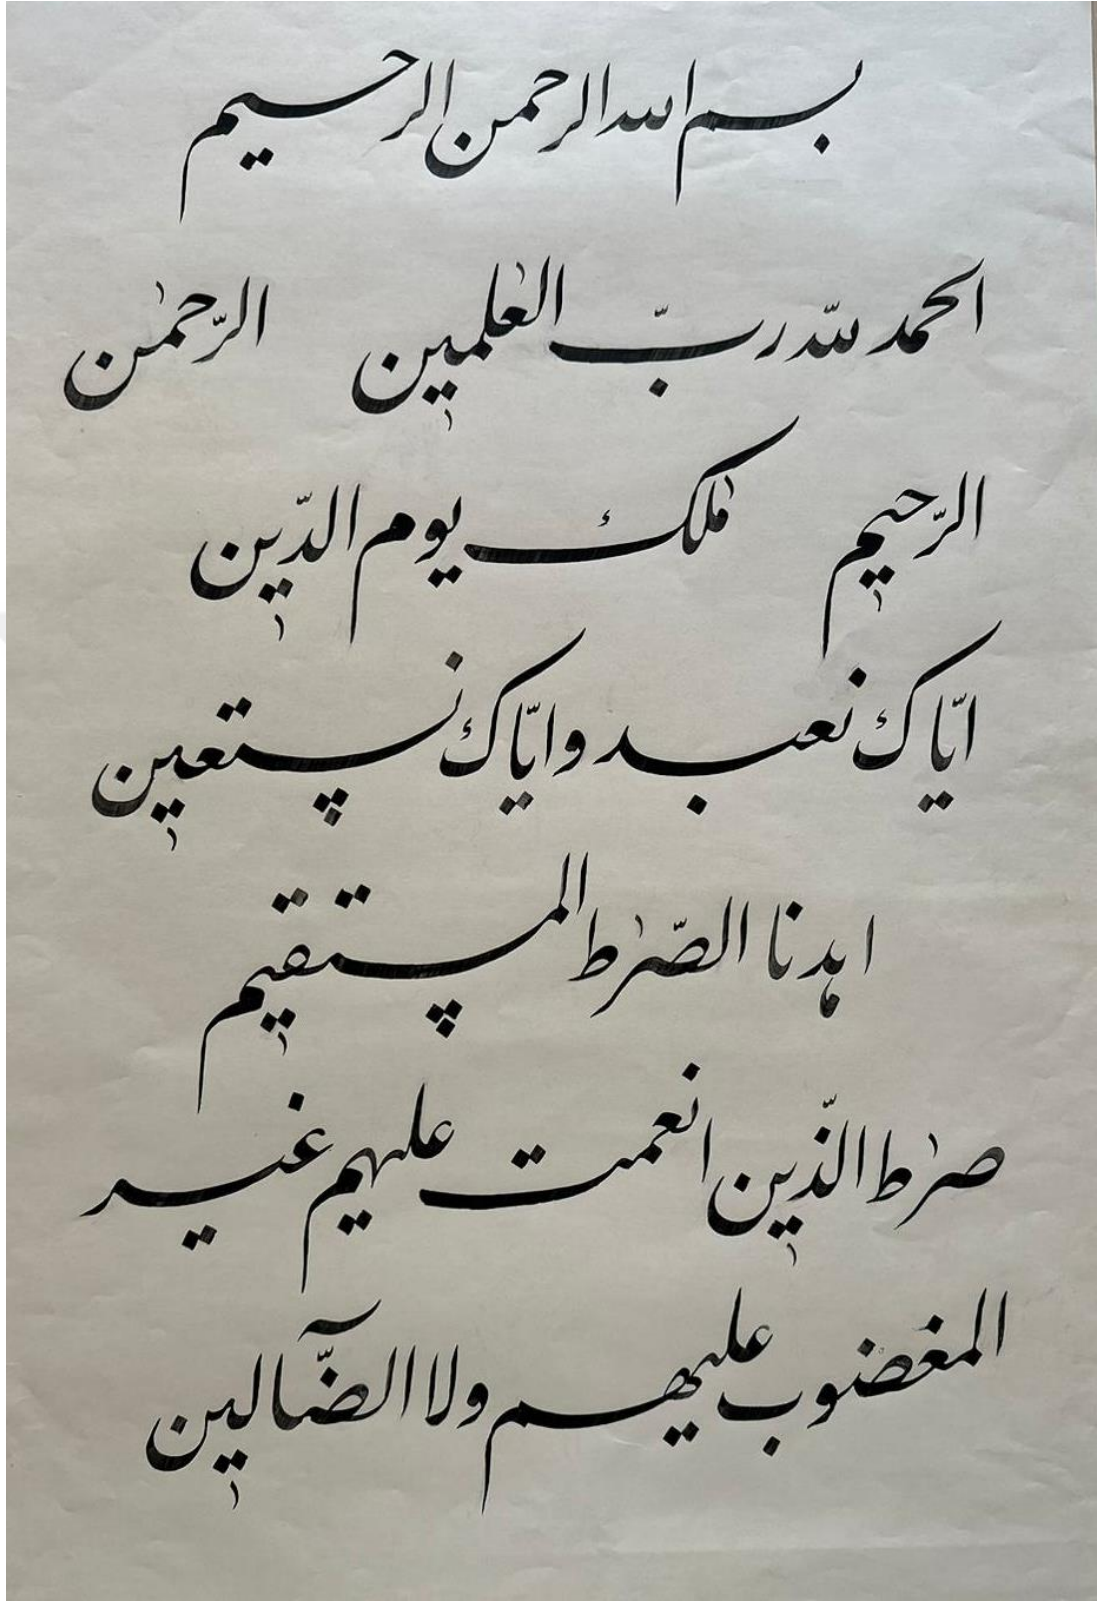 بسم الله الرحمن الرحیم
الحمد للّٰه ربّ العٰلمین الرّحمٰن
الرّحیم مٰلک یوم الدّین
ایّاک نعبد وایّاک نستعین
اهدنا الصّرٰط المستقیم
صرٰط الّذین انعمت علیهم غیر
المغضوب علیهم ولا الضّآلین